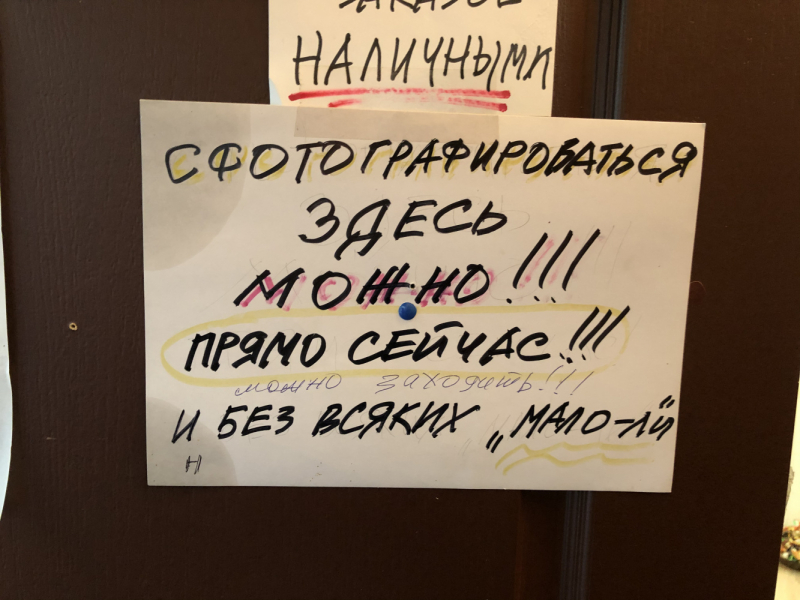 ЗАКАЗОВ
НАЛИЧНЫМИ
СФОТОГРАФИРОВАТЬСЯ
ЗДЕСЬ
МОЖНО!!!
ПРЯМО СЕЙЧАС!!!
можно заходить!!!
И БЕЗ ВСЯКИХ „МАЛО-ЛИ“
Н